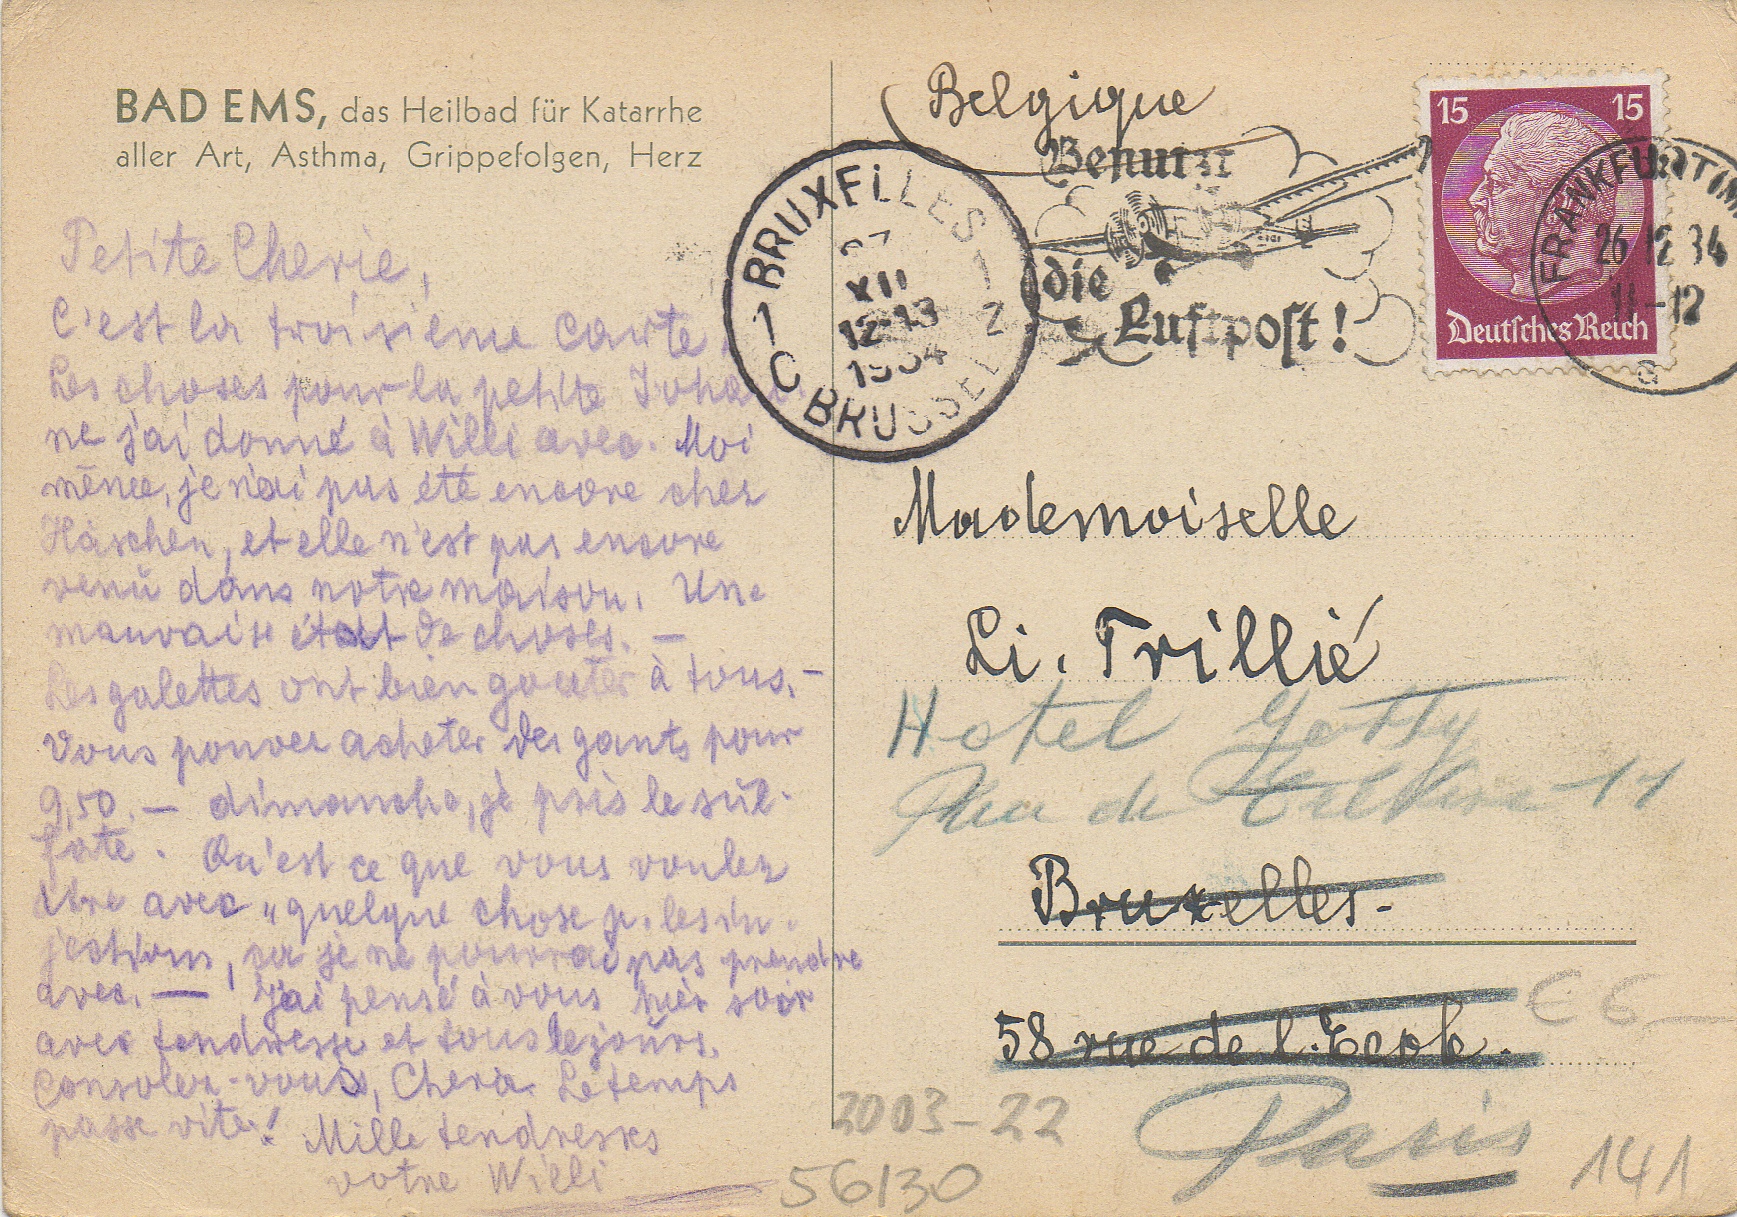 BAD EMS, das Heilbad für Katarrhe
aller Art, Asthma, Grippefolgen, Herz
Petite Cherie,
C'est la troisieme carte.
Les choses pour la petite Joha
ne j'ai donné à Willi avec. Moi
même, je n'ai pas été encore chez
Häschen, et elle n'est pas encore
venŭ dans notre maison. Une
mauvaise état de choses. —
Les galettes ont bien gouter à tous. —
Vous pouvez acheter des gants pour
9,50. — dimanche, jé pris le sŭl-
fate. Qu'est ce que vous voulez
dire avec „quelque chose p. les in-
jections, ça je ne pourrai pas prendre
avec. — J'ai pensé à vous hier soir
avec tendresse et tous le joŭrs.
Consolez-vous, Cheria. Le temps
passe vite! Mille tendresses
votre Willi
Belgique
Benutzt
die
Luftpost!
BRUXELLES 1
27
XII
12-13
1934
1 C BRUSSEL 2
15 15
Deutsches Reich
FRANKFURT (MAIN
26 12 34
11-12
G
Mademoiselle
Li. Trillié
Hotel
Rue de 11
Bruxelles.
58 rue de l'Ecole.
Paris
€ 6,—
2003-22
56/30
141